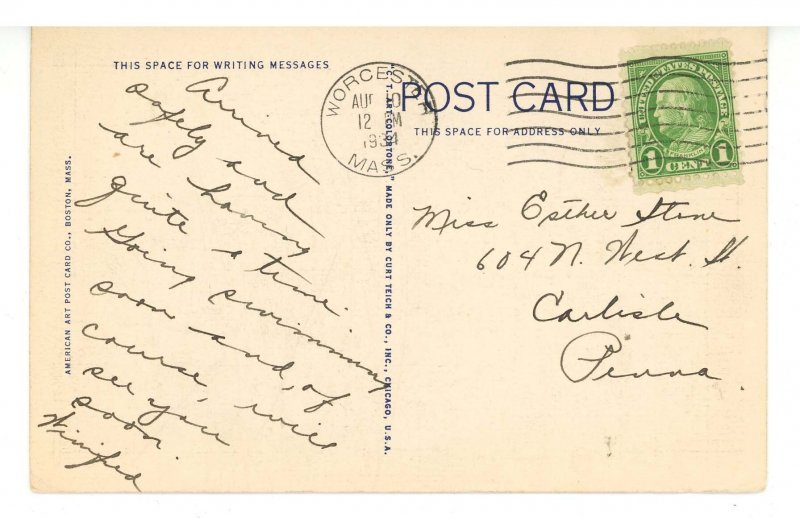 THIS SPACE FOR WRITING MESSAGES
Arrived
safely and
are having
quite a time.
Going swimming
soon and, of
course, will
see you
soon.
Winifred
AMERICAN ART POST CARD CO., BOSTON, MASS.
"C.T. ART-COLORTONE," MADE ONLY BY CURT TEICH & CO., INC., CHICAGO, U.S.A.
WORCESTER
AUG 10
12 M
1934
MASS.
POST CARD
THIS SPACE FOR ADDRESS ONLY
UNITED STATES POSTAGE
FRANKLIN
1 CENT 1
Miss Esther Stone
604 N. West. St.
Carlisle
Penna.